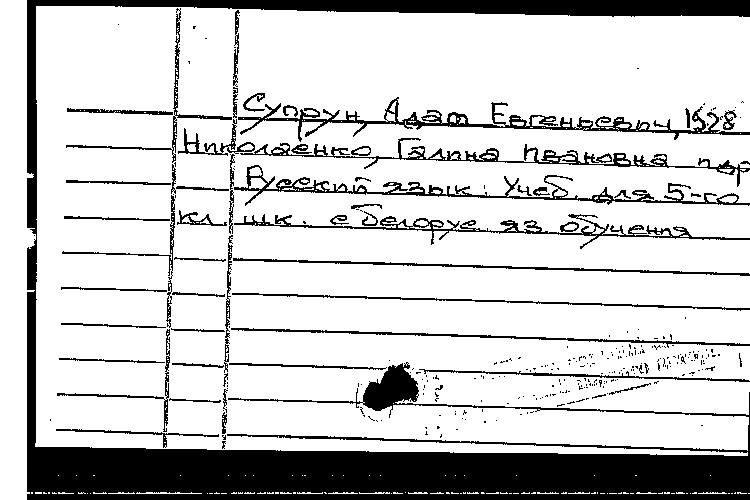 Супрун, Адам Евгеньевич, 1928
Николаенко, Галина Ивановна и др
Русский язык: Учеб. для 5-го
кл. шк. с белорус. яз обучения